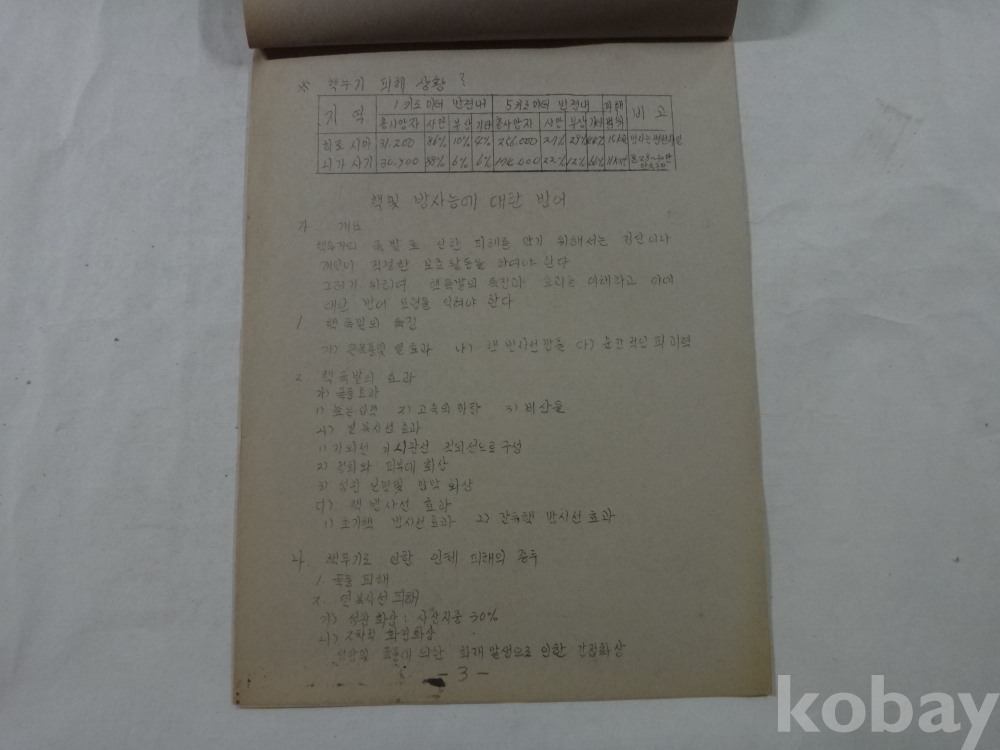 ※ 핵무기 피해 상황?
지역 1키로미터 반경내 5키로미터 반경내 피해 비고
총사망자 사망 부상 기타 총사망자 사망 부상 기타 범위
히로시마 31.200 86% 10% 4%
나가사기 30.900 88% 6% 6% 22% 12% 66%
핵및 방사능에 대한 방어
가. 개요
핵무기의 폭발로 인한 피해를 막기 위해서는
개인이 적절한 보호 활동을 하여야 한다
그러기 위하여 핵폭발의 특징과 효과를 이해하고 이에
대한 방어 요령을 익혀야 한다
1. 핵폭발의 특징
가) 열효과 나) 핵 방사선 다) 순간적인 파괴력
2. 핵폭발의 효과
가) 폭풍효과
1) 2) 고속의 3) 비산물
나) 열복사선 효과
1) 가시광선 적외선으로 구성
2) 피부에 화상
3) 섬광 실명및 화상
다) 핵방사선 효과
1) 초기핵 방사선효과 2) 잔류핵 방사선 효과
나. 핵무기로 인한 인체 피해의 종류
1. 폭풍 피해
2. 열복사선 피해
가) 섬광 화상: 사상자중 30%
나) 2차적 화염화상
의한 화재 발생으로 인한 간접화상
- 3 -
kobay